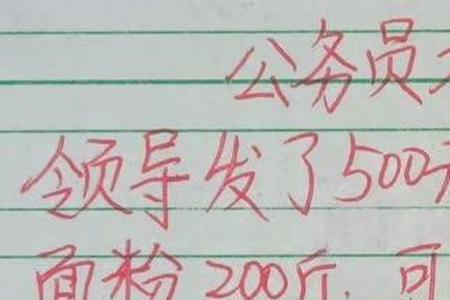 公务员
领导发了500
面粉200斤,可